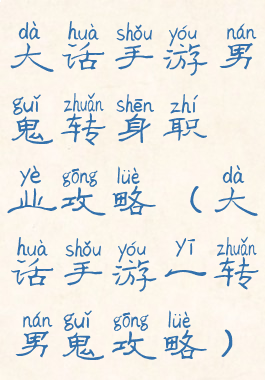 dà huà shǒu yóu nán
大话手游男
guǐ zhuǎn shēn zhí
鬼转身职
yè gōng lüè dà
业攻略（大
huà shǒu yóu yī zhuǎn
话手游一转
nán guǐ gōng lüè
男鬼攻略）